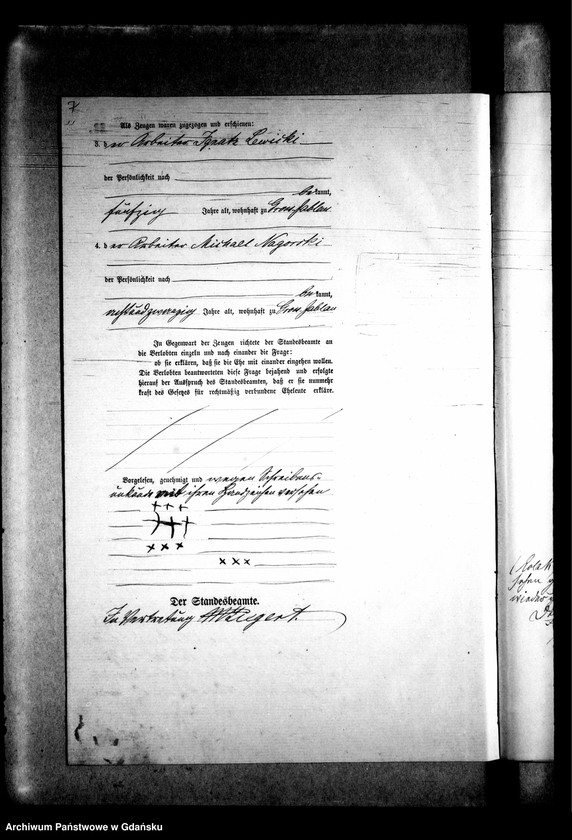 7
Als Zeugen waren zugezogen und erschienen:
3. der Arbeiter Ignatz Lewiski
der Persönlichkeit nach
bekannt,
fünfzig Jahre alt, wohnhaft zu Gross Jablau
4. der Arbeiter Michael Nagorski
der Persönlichkeit nach
bekannt,
Jahre alt, wohnhaft zu Gross Jablau
In Gegenwart der Zeugen richtete der Standesbeamte an
die Verlobten einzeln und nach einander die Frage:
ob sie erklären, daß sie die Ehe mit einander eingehen wollen.
Die Verlobten beantworteten diese Frage bejahend und erfolgte
hierauf der Ausspruch des Standesbeamten, daß er sie nunmehr
kraft des Gesetzes für rechtmäßig verbundene Eheleute erkläre.
Vorgelesen, genehmigt und wegen Schreibens-
unkunde mit ihren Handzeichen versehen
+ + +
+ + +
× × ×
× × ×
Der Standesbeamte.
In Vertretung
Archiwum Państwowe w Gdańsku